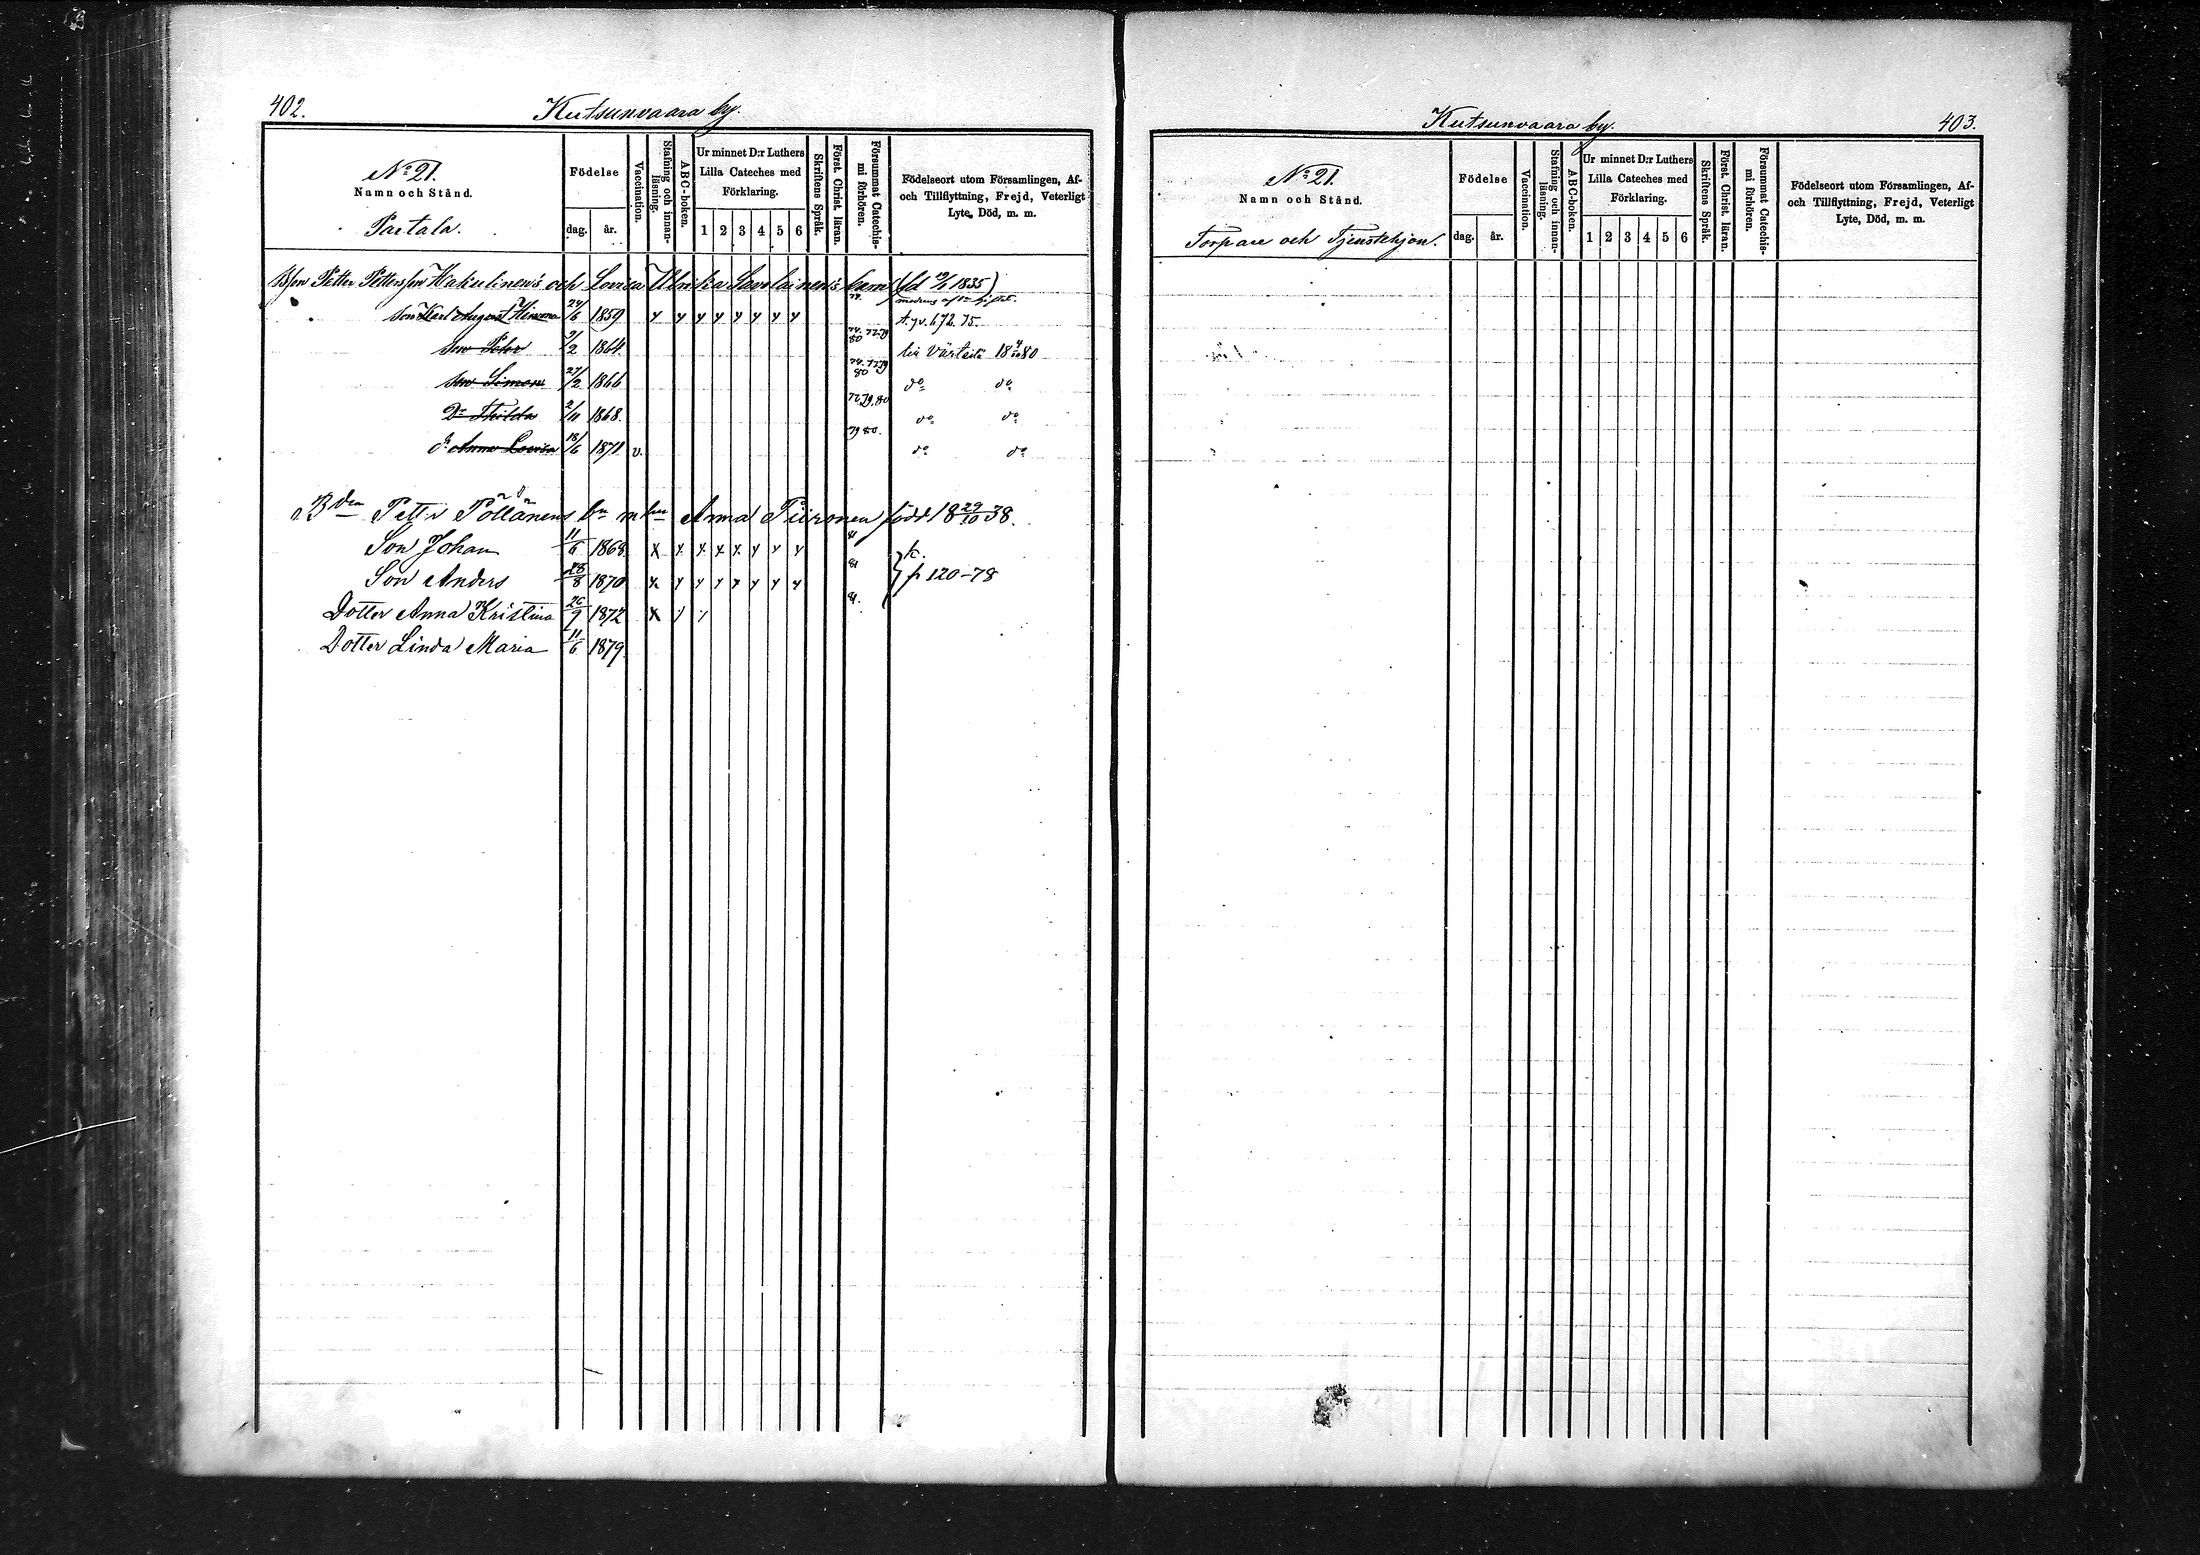 402. Kutsunvaara by.
No 21.
Namn och Stånd.
Partala.
Födelse
dag. år.
Vaccination.
Stafning och innanläsning.
ABC-boken.
Ur minnet D:r Luthers Lilla Cateches med Förklaring.
1 2 3 4 5 6
Skriftens Språk.
Först. Christ. läran.
Försummat Catechismi förhören.
Födelseort utom Församlingen, Af- och Tillflyttning, Frejd, Veterligt Lyte, Död, m. m.
Petter Hakulinens och Lovisa Ulrika Savolainens barn (fd 1835)
Son Karl August 24/6 1859 x x x x x x x x 672. 75.
Son Petter 2/2 1864. Värtsilä 18 80
Son Simon 27/2 1866 do do
Do Thilda 2/11 1868. 79.80 do do
do Anna Lovisa 18/6 1871 v. 79 80. do do
Petter Pöllänens bn m hu Anna Piironen född 18 29/10 38.
Son Johan 11/6 1868 x x x x x x x x 81 k.
Son Anders 28/8 1870 x x x x x x x x 81 p 120-78
Dotter Anna Kristina 26/9 1872 x 81.
Dotter Linda Maria 11/6 1879.
Kutsunvaara by. 403.
No 21.
Namn och Stånd.
Torpare och Tjenstehjon.
Födelse
dag. år.
Vaccination.
Stafning och innanläsning.
ABC-boken.
Ur minnet D:r Luthers Lilla Cateches med Förklaring.
1 2 3 4 5 6
Skriftens Språk.
Först. Christ. läran.
Försummat Catechismi förhören.
Födelseort utom Församlingen, Af- och Tillflyttning, Frejd, Veterligt Lyte, Död, m. m.